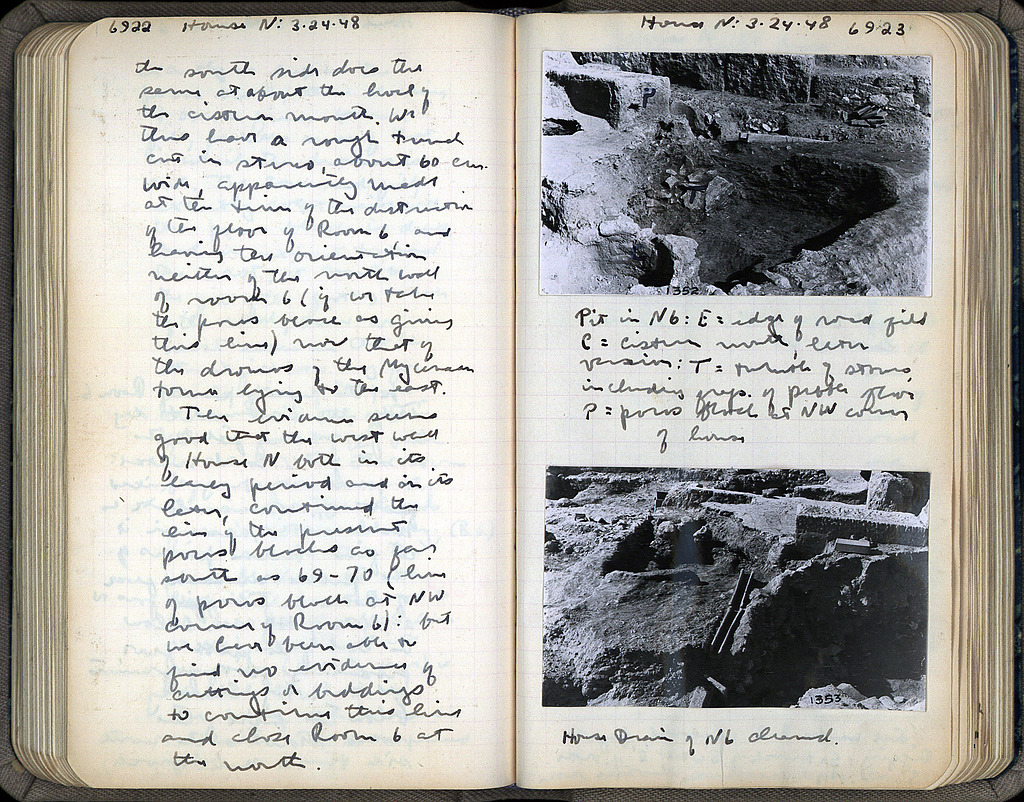 6922 House N: 3-24-48
the south side does the
same at about the level of
the cistern mouth. We
thus have a rough round
cut in stereo, about 60 cm.
wide, apparently made
at the time of the destruction
of the floor of Room 6 and
having the orientation
neither of the north wall
of room 6 (if we take
the poros block as giving
this line) nor that of
the dromos of the Mycenaean
tomb lying to the east.
The evidence seems
good that the west wall
of House N both in its
early period and in its
later, continued the
line of the present
poros blocks as far
south as 69-70 (line
of poros block at NW
corner of Room 6): but
we have been able to
find no evidence of
cuttings or beddings
to continue this line
and close Room 6 at
the north.
House N: 3-24-48 6923
P
1352
Pit in N6: E = edge of road fill
C = cistern mouth, later
version: T = tumble of stones,
including frags. of pebble floor
P = poros block at NW corner
of house
1353
House Drain of N6 cleaned.